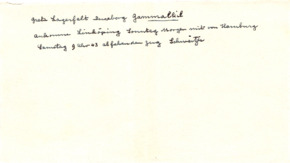 Greta Lagerfelt Duseborg Gammalkil
ankomme Linköping Sonntag Morgen mit von Hamburg
Samstag 9 Uhr 03 abfahrenden Zug